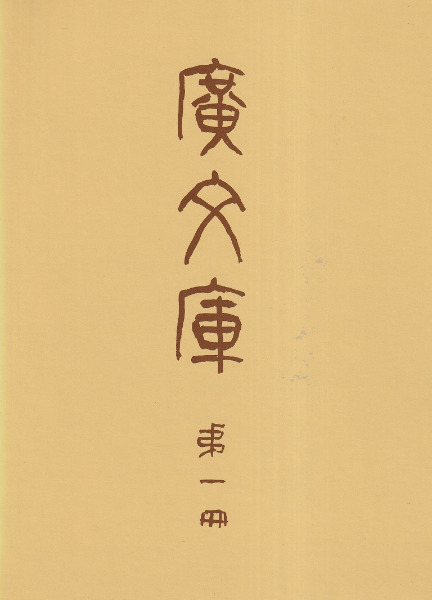 廣文庫
弟一冊